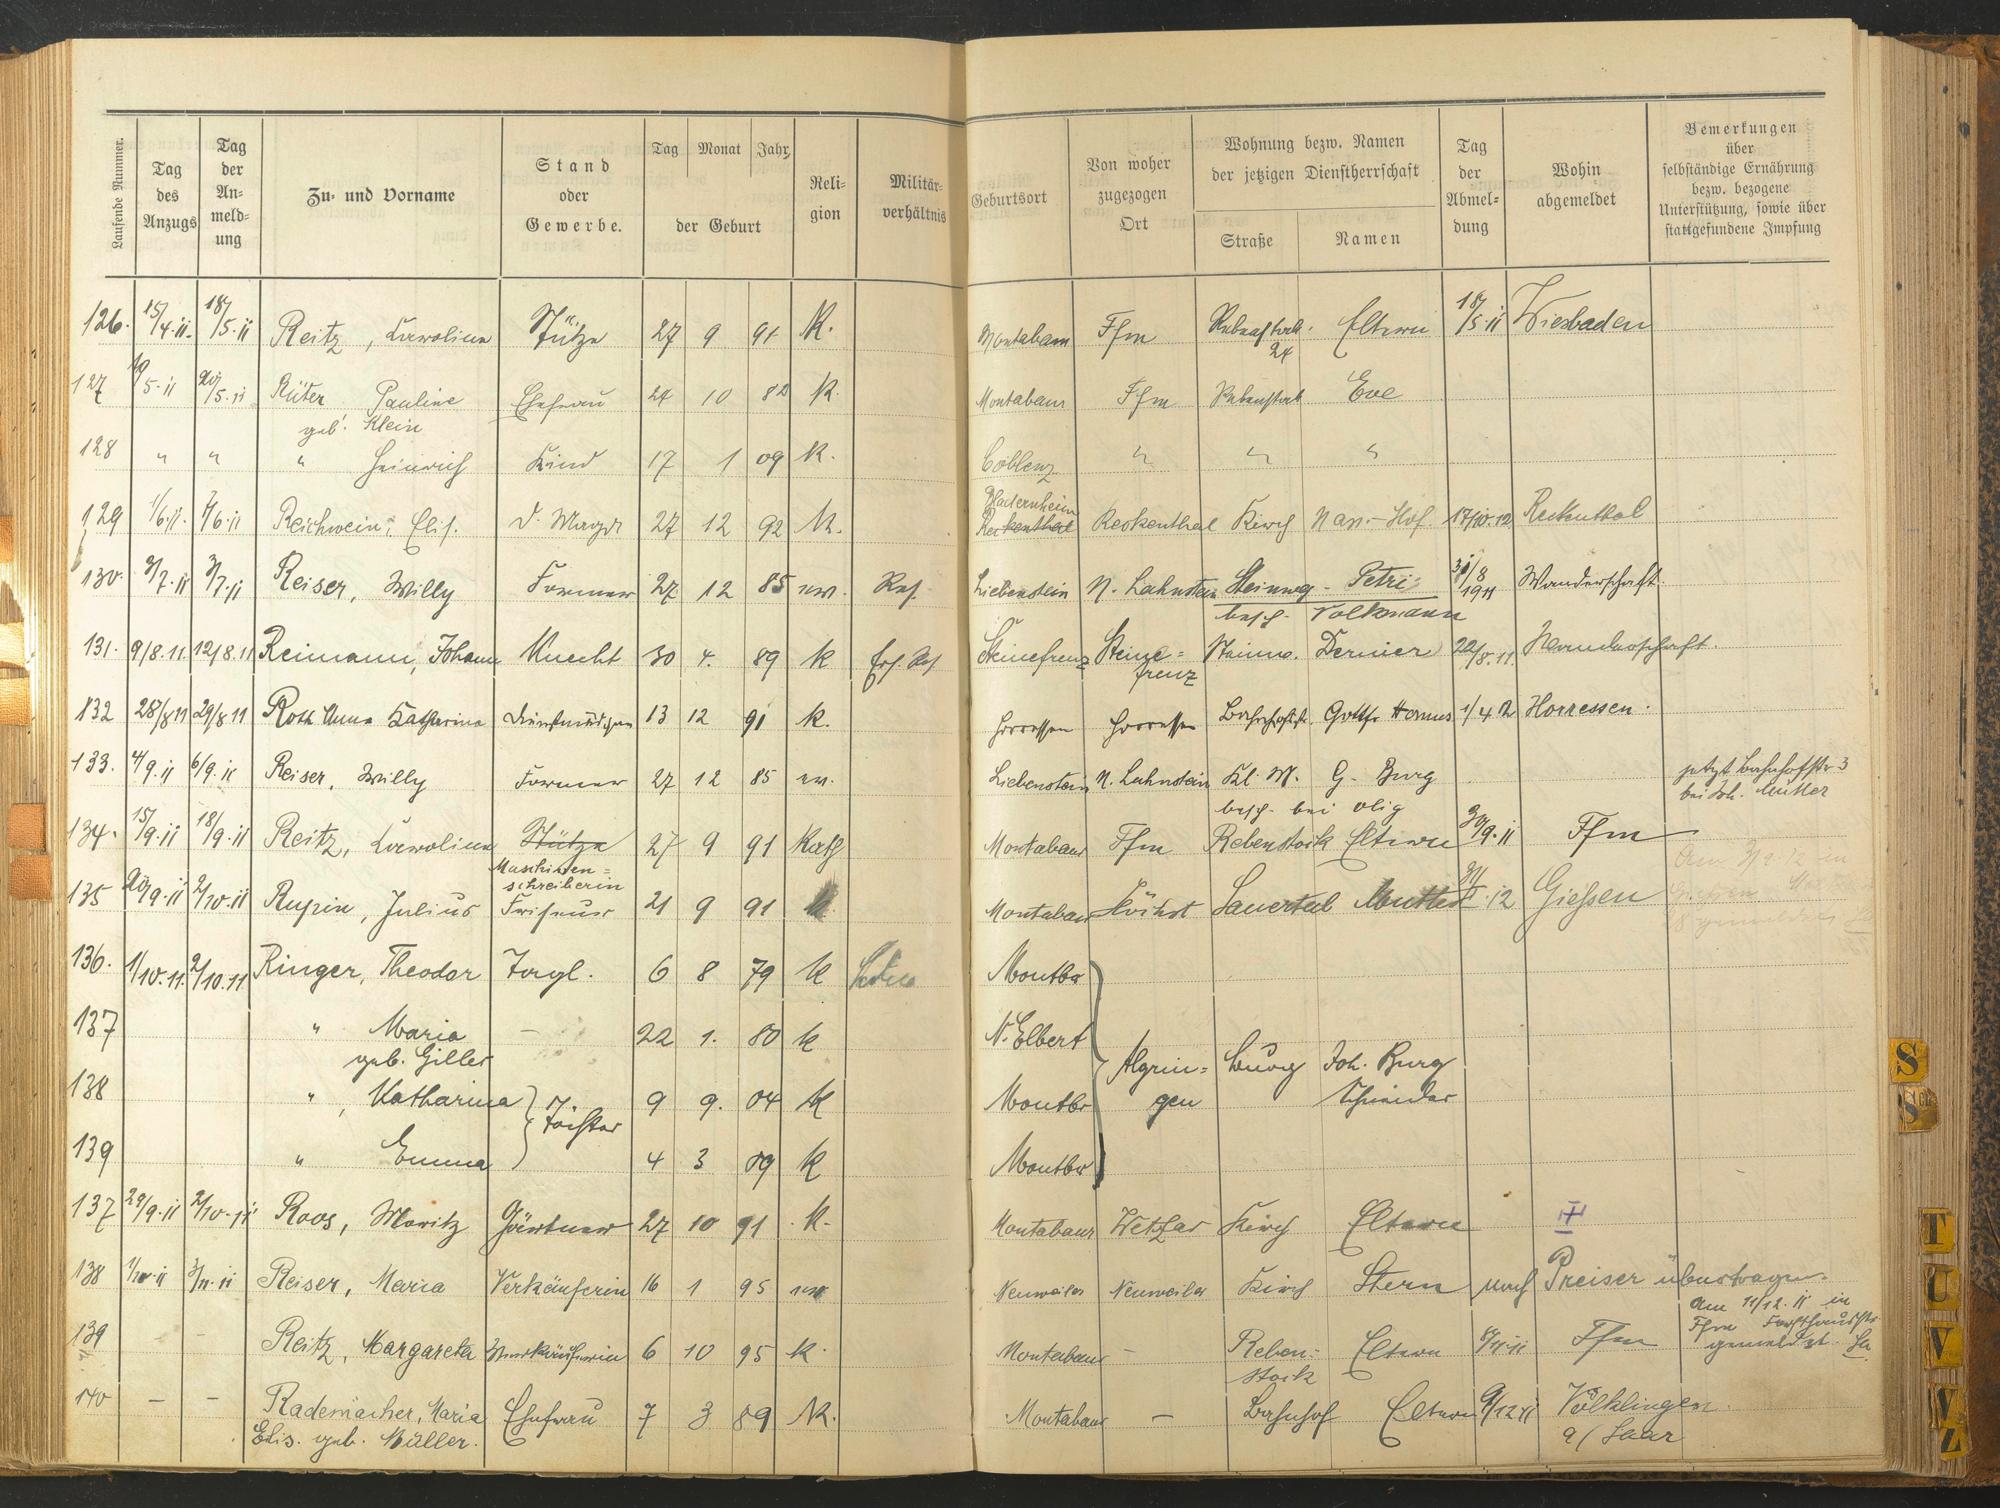 Laufende Nummer. Tag des Anzugs Tag der An-meld-ung Zu- und Vorname Stand oder Gewerbe. Tag Monat Jahr der Geburt Reli-gion Militär-verhältnis Geburtsort Von woher zugezogen Ort Wohnung bezw. Namen der jetzigen Dienstherrschaft Straße Namen Tag der Abmel-dung Wohin abgemeldet Bemerkungen über selbständige Ernährung bezw. bezogene Unterstützung, sowie über stattgefundene Impfung
126. 15/4.11. 18/5.11 Reitz, Karoline Stütze 27 9 91 K. Montabaur Ffm Rebenstock. 24 Eltern 18/5.11 Wiesbaden
127 /5.11 20/5.11 Rüter Pauline Ehefrau 24 10 82 K. Montabaur Ffm Rebenstock Eve
geb. Klein
128 " " " Heinrich Kind 17 1 09 K. Coblenz " " "
129 1/6.11. /6.11 Reichwein, Elis. d. Magd 27 12 92 K. Reckenthal Reckenthal Kirch Nass.-Hof. 17/10.12 Reckenthal
130. 3/7.11 3/7.11 Reiser, Willy Former 27. 12 85 ev. Res. Liebenstein N. Lahnstein Steinweg - Petri= 31/8 1911 Wanderschaft.
besch. Volkmann
131. 9/8.11. 12/8.11 Reimann, Johann Knecht 30 4. 89 K Ers. Res Steinefrenz Steine=frenz Steinw. Dernier 22/8.11. Wanderschaft.
132 28/8 11 29/8 11 Roth Anna Katharina Dienstmädchen 13 12 91 K. Horressen Horressen Bahnhofstr. Gottfr. Hannes 1/4 12 Horressen.
133. 4/9.11 6/9.11 Reiser, Willy Former 27 12 85 ev. Liebenstein N. Lahnstein Kl. M. G. Burg jetzt Bahnhofstr 3
besch. bei Olig bei Joh. Müller
134. 15/9.11 18/9.11 Reitz, Karoline Stütze 27 9 91 Kath Montabaur Ffm Rebenstock Eltern 30/9.11 Ffm
Maschinen=schreiberin
135 20/9.11 2/10.11 Rupin, Julius Friseur 21 9 91 K Montabaur Höchst Sauertal Mutter .12 Gießen
136. 1/10.11. 2/10.11 Ringer, Theodor Tagl. 6 8 79 K Montbr
137 " Maria – 22 1. 80 K N. Elbert
geb. Giller Algrin=gen Burg Joh. Burg Schneider
138 ", Katharina Töchter 9 9. 04 K Montbr
139 " Emma 4 3 09 K Montbr
137 29/9.11 2/10.11 Roos, Moritz Gärtner 27 10 91 K. Montabaur Wetzlar Kirch Eltern
138 1/10.11 3/11.11 Reiser, Maria Verkäuferin 16 1 95 ev Neuweiler Neuweiler Kirch Stern nach Preiser übertragen.
139 – – Reitz, Margareta Verkäuferin 6 10 95 K. Montabaur – Reben=stock Eltern /11.11 Ffm am 11/12.11 in Ffm gemeldet.
140 – – Rademacher, Maria Ehefrau 7 3 89 K. Montabaur – Bahnhof Eltern 9/12 11 Völklingen
Elis. geb. Müller. a/Saar
S
Sch
T
U
V
W
Z